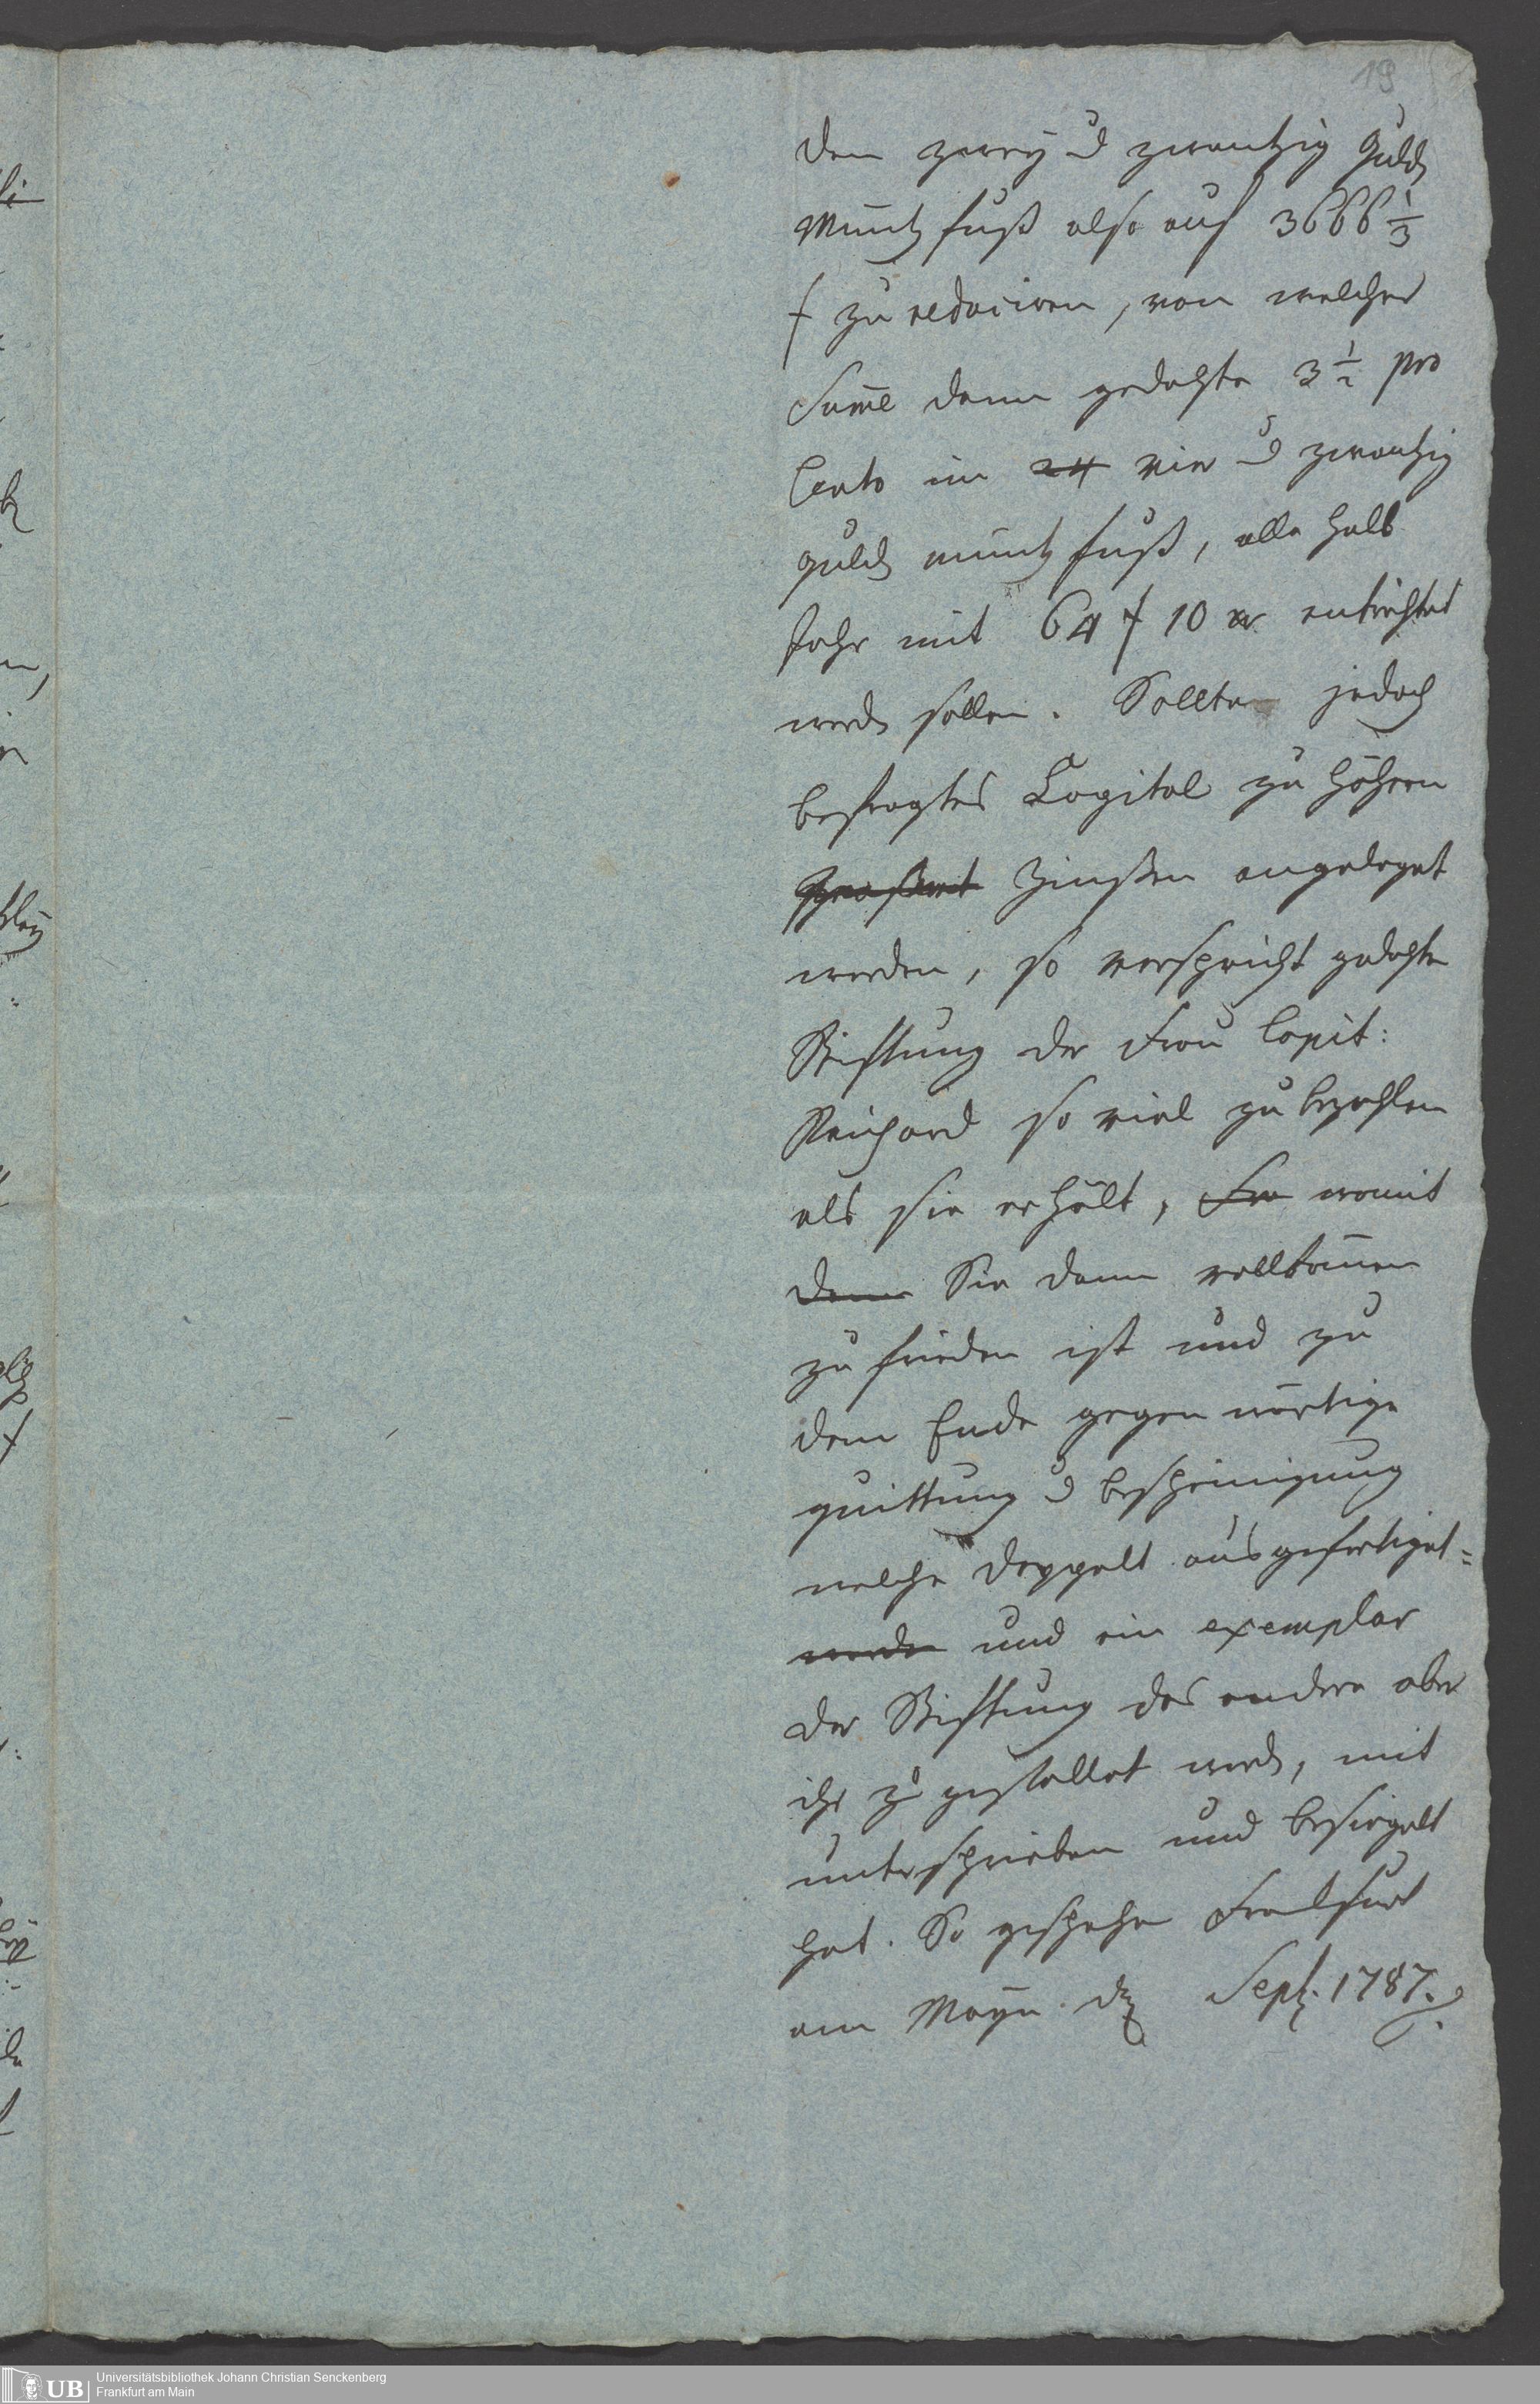 19
den zwey u zwantzig Guld
Müntz fuß also auf 3666 1/3
f zu reduciren, von welcher
Sume dann gedachte 3 1/2 pro
Cento im 24 vier u zwantzig
guld müntz fuß, alle halb
Jahr mit 64 f 10 xr entrichtet
werd sollen. Sollte jedoch
besagtes Capital zu höhern
Zinßen angeleget
werden, so verspricht gedachte
Stiftung der Frau Capit:
Reichard so viel zu bezahlen
als sie erhält, womit
dann Sie dann vollkomen
zu frieden ist und zu
dem Ende gegen wärtige
quittung u bescheinigung
welche doppelt ausgefertiget=
werden und ein exemplar
der Stiftung das andere aber
ihr zu gestellet werd, mit
unterschrieben und besiegelt
hat. So geschehen Franckfurt
am Mayn d Sept. 1787.
UB Universitätsbibliothek Johann Christian Senckenberg
Frankfurt am Main